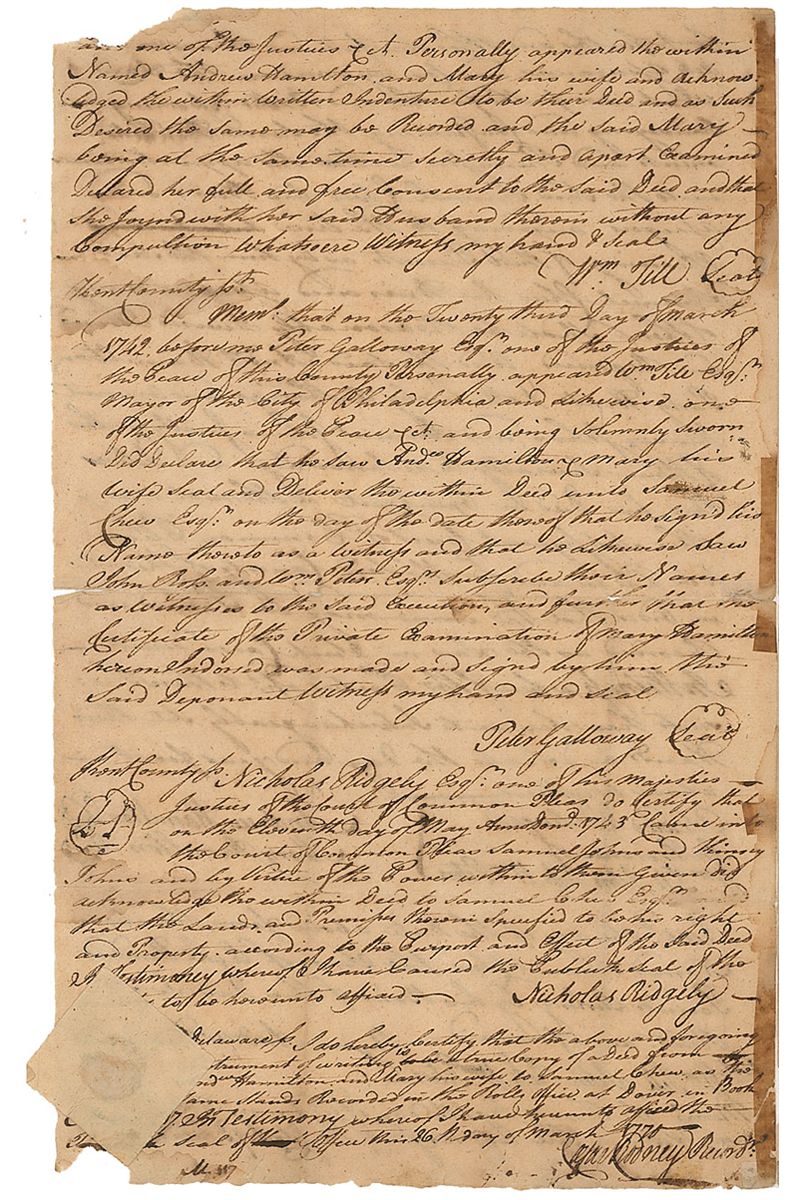 and one of the Justices &ct. Personally appeared the within
Named Andrew Hamilton and Mary his wife and Acknow:
ledged the within Written Indenture to be their Deed and as Such
Desired the same may be Recorded and the said Mary
being at the same time Secretly and apart Examined
Declared her full and free Consent to the said Deed and that
she Joynd with her said Husband therein without any
Compultion Whatsoere Witness my hand & Seal
Wm Till Seal
Kent County ss.
Memd. that on the Twenty third Day of March
1742. before me Peter Galloway Esqr. one of the Justices of
the Peace of this County Personally appeared Wm Till Esqr.
Mayor of the City of Philadelphia and Likewise one
of the Justices of the Peace &ct. and being Solemnly Sworn
Did Declare that he saw Andw Hamilton & Mary his
wife Seal and Deliver the within Deed unto Samuel
Chew Esqr. on the day of the date thereof that he Signd his
Name thereto as a Witness and that he Likewise Saw
John Ross and Wm Peter Esqrs Subscribe their Names
as Witnesses to the said Execution, and further that the
Certificate of the Private Examination of Mary Hamilton
hereon Indorsed was made and Signd by him the
Said Deponant Witness my hand and seal
Peter Galloway Seal
Kent County ss. Nicholas Ridgely Esqr. one of his Majesties
Justices of the Court of Common Pleas do Certify that
on the Eleventh day of May Anno Dom. 1743 Came into
the Court of Common Pleas Samuel Johns and
Johns and by Virtue of the Power within to them Given did
acknowledge the within Deed to Samuel Chew Esqr.
that the Lands and Premises therein Specified to be his right
and Property according to the Purport and Effect of the Said Deed
In Testimoney whereof I have Caused the Publick Seal of the
to be hereunto affixed
Nicholas Ridgely
Delaware ss. I do hereby Certify that the above and foregoing
strument of writing is a true Copy of a Deed from
Hamilton and Mary his wife to Samuel Chew as the
same Stands Recorded in the Rolls Office at Dover in Book
In Testimony whereof I have hereunto affixed the
Seal of Office this 26th day of March 1770
Caesar Rodney Recordr.